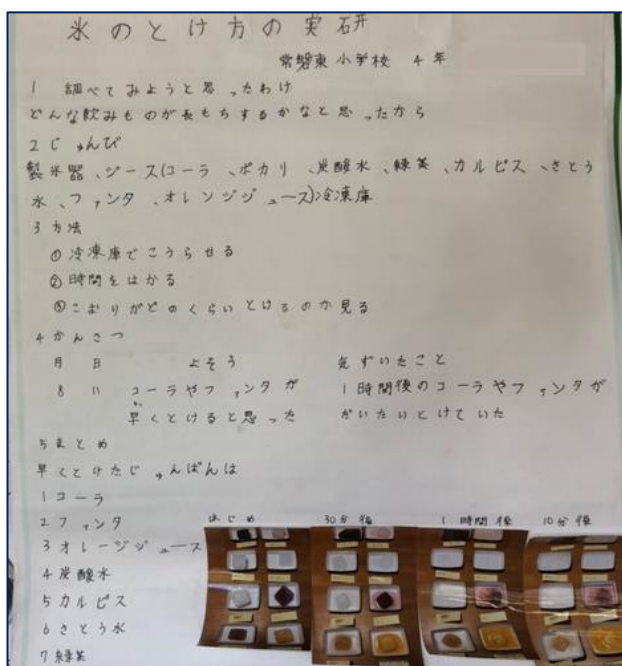 氷のとけ方の実研
常磐東小学校 4年
1 調べてみようと思ったわけ
どんな飲みものが長もちするかなと思ったから
2 じゅんび
製氷器、ジース(コーラ、ポカリ、炭酸水、緑茶、カルピス、さとう
水、ファンタ、オレンジジュース)冷凍庫
3 方法
①冷凍庫でこうらせる
②時間をはかる
③こおりがどのくらいとけるのか見る
4 かんさつ
月 日 よそう 気ずいたこと
8 11 コーラやファンタが 1時間後のコーラやファンタが
早くとけると思った だいたいとけていた
5 まとめ
早くとけたじゅんばんは
1 コーラ
2 ファンタ はじめ 30分後 1時間後 10分後
3 オレージジュース
4 炭酸水
5 カルピス
6 さとう水
7 緑茶